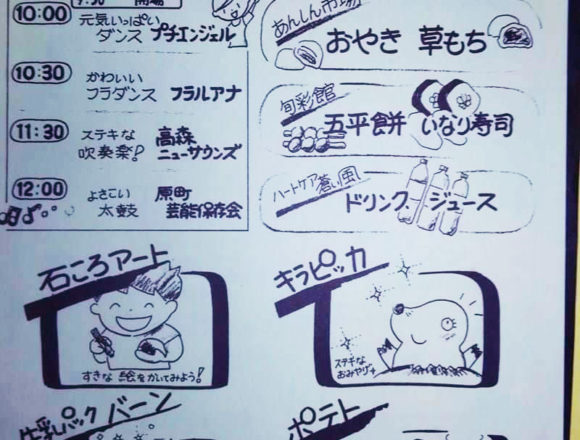 9:30 開場
10:00 元気いっぱい
ダンス プチエンジェル
10:30 かわいい
フラダンス フラルアナ
11:30 ステキな 高森
吹奏楽! ニューサウンズ
12:00 よさこい 原町
太鼓 芸能保存会
あんしん市場
おやき 草もち
旬彩館
五平餅 いなり寿司
ハートケア蒼い風
ドリンク ジュース
石ころアート
すきな絵をかいてみよう!
キラピッカ
ステキな
おみやげ
牛乳パックバーン
ポテト